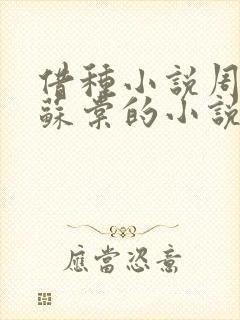 借種小説周
蘇棠的小説
應當恣意